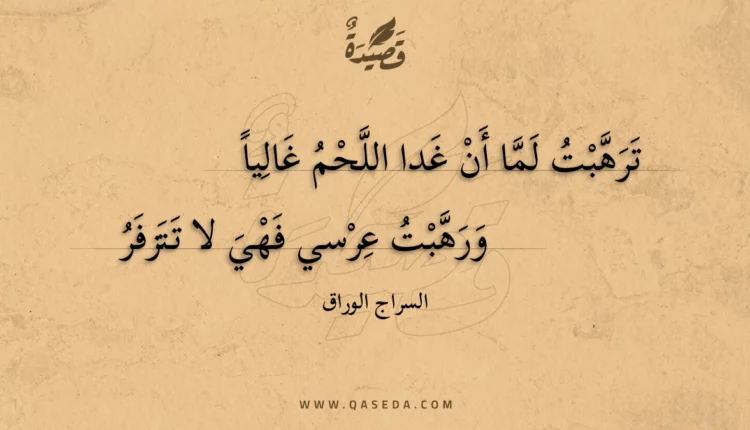 قَصِيْدَةٌ
تَرَهَّبْتُ لَمَّا أَنْ غَدا اللَّحْمُ غَالِياً
وَرَهَّبْتُ عِرْسي فَهْيَ لا تَتَزَفَرُ
السراج الوراق
WWW.QASEDA.COM